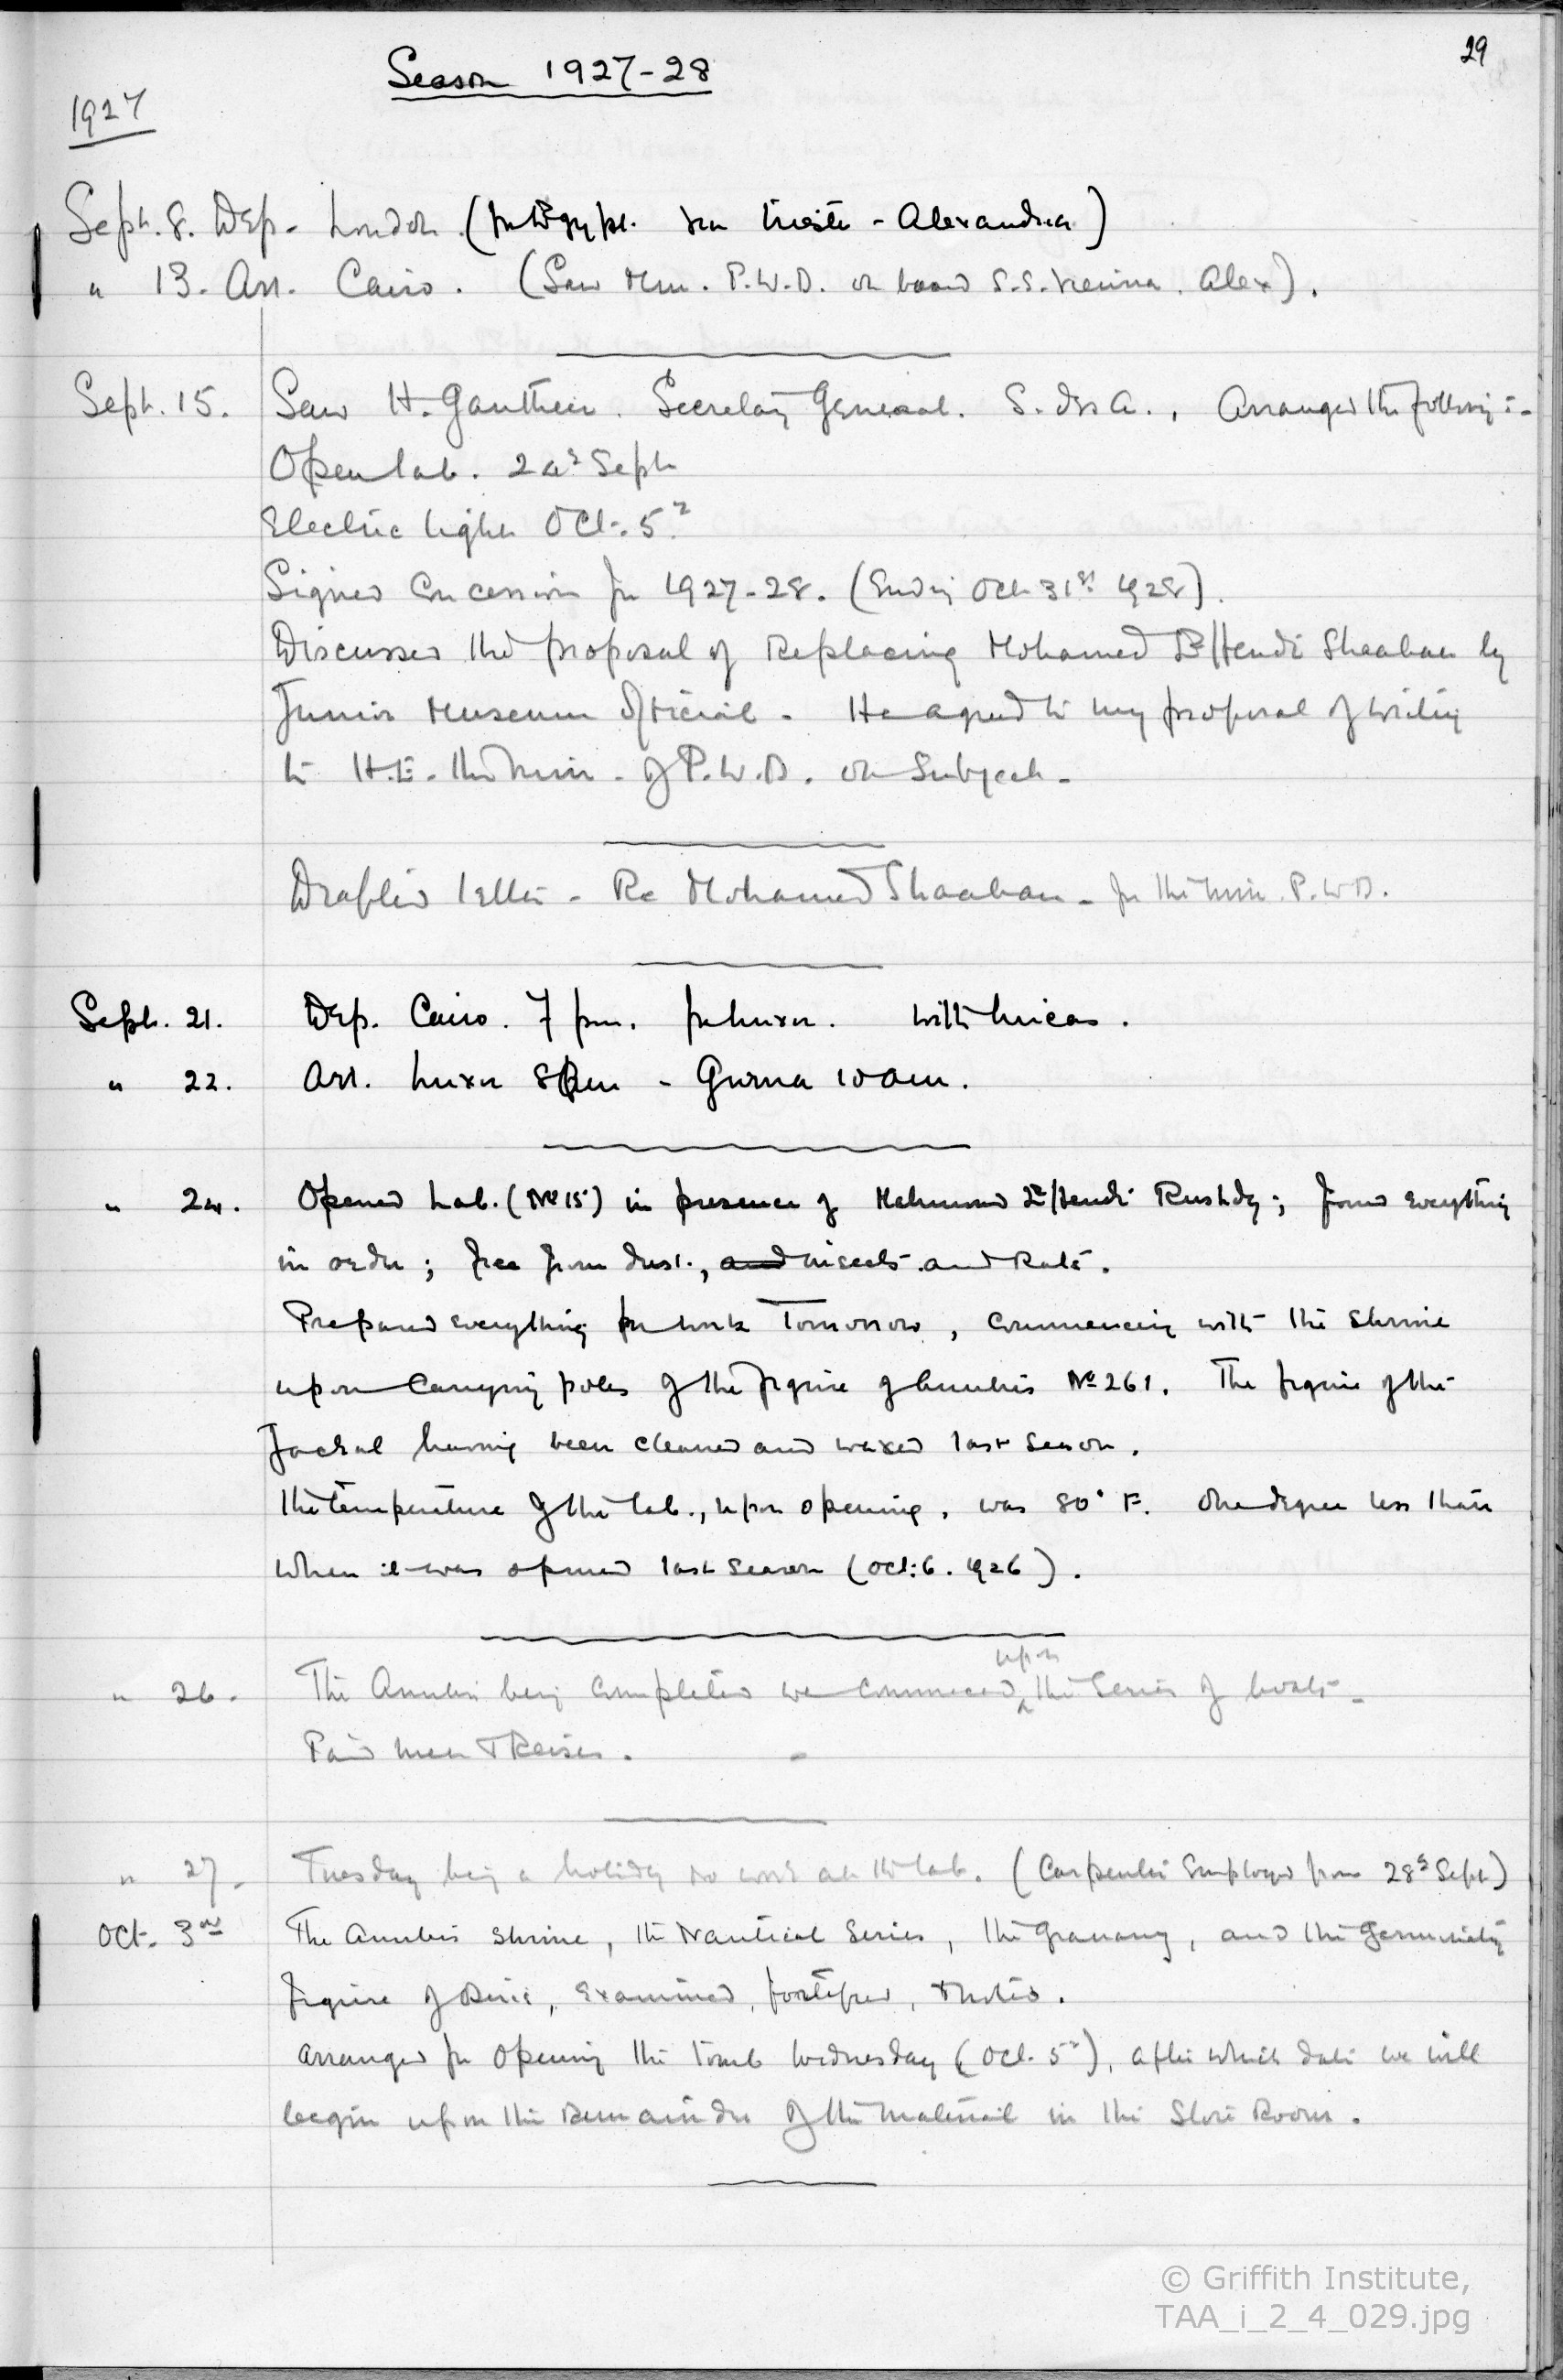 29
Season 1927-28
1927
Sept. 8. Dep. London (for Egypt. via Trieste - Alexandria)
" 13. Arr. Cairo. (Saw Min. P.W.D. on board S.S. Vienna. Alex).
Sept. 15. Saw H. Gauthier. Secretary General. S. des A., Arranged the following:-
Open lab. 24th Sept
Electric light Oct. 5th
Signed Concession for 1927-28. (Ending Oct 31st 1928).
Discussed the proposal of Replacing Mohamed Effendi Shaaban by
Junior Museum Official. He agreed to my proposal of writing
to H.E. the Min. of P.W.D. on Subject.
Drafted letter - Re Mohamed Shaaban - for the Min. P.W.D.
Sept. 21. Dep. Cairo. 7 pm. for Luxor. with Lucas.
" 22. Arr. Luxor 8 am - Gurna 10 am.
" 24. Opened Lab. (No 15) in presence of Mahmoud Effendi Rushdy; found everything
in order; free from dust, and insects and Rats.
Prepared everything for work Tomorrow, commencing with the shrine
upon Carrying poles of the figure of Anubis No 261. The figure of the
Jackal having been cleaned and waxed last season.
The temperature of the lab., upon opening, was 80° F. One degree less than
when it was opened last season (Oct. 6. 1926).
" 26. The Anubis being completed we commenced upon the Series of boats.
Paid men & Reises.
" 27. Tuesday being a holiday no work at the lab. (Carpenter Employed from 28th Sept)
Oct. 3rd The Anubis shrine, the Nautical Series, the Granary, and the Germinating
figure of Osiris, Examined, fortified, & noted.
Arranged for Opening the tomb Wednesday (Oct. 5th), after which date we will
begin upon the Remainder of the material in the Store Room.
© Griffith Institute,
TAA_i_2_4_029.jpg